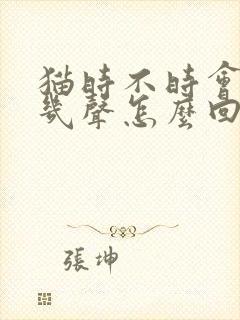 猫時不時會
幾聲怎麼回
張坤